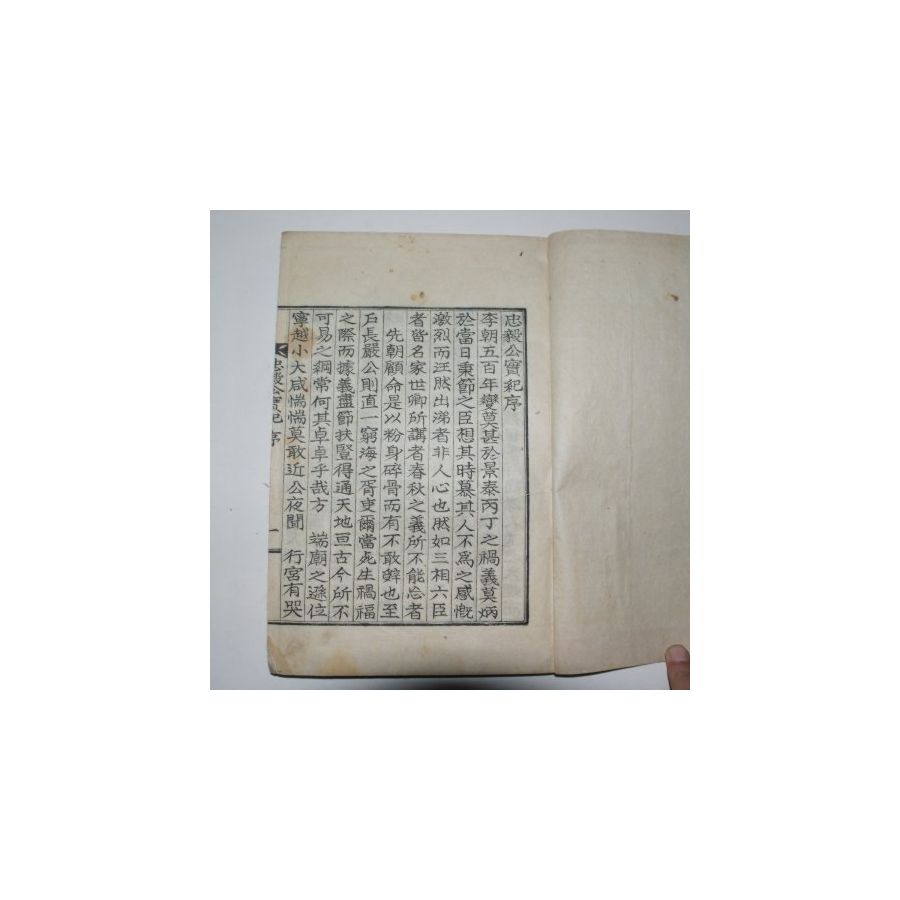 忠毅公實紀序
李朝五百年變莫甚於景泰丙丁之禍義莫炳
於當日秉節之臣想其時慕其人不爲之感慨
激烈而汪然出涕者非人心也然如三相六臣
者皆名家世卿所講者春秋之義所不能忘者
先朝顧命是以粉身碎骨而有不敢辭也至
戶長嚴公則直一窮海之胥吏爾當死生禍福
之際而據義盡節扶竪得通天地亘古今所不
可易之綱常何其卓卓乎哉方 端廟之遜位
寧越小大咸惴惴莫敢近公夜聞 行宮有哭
忠毅公實紀 序 一